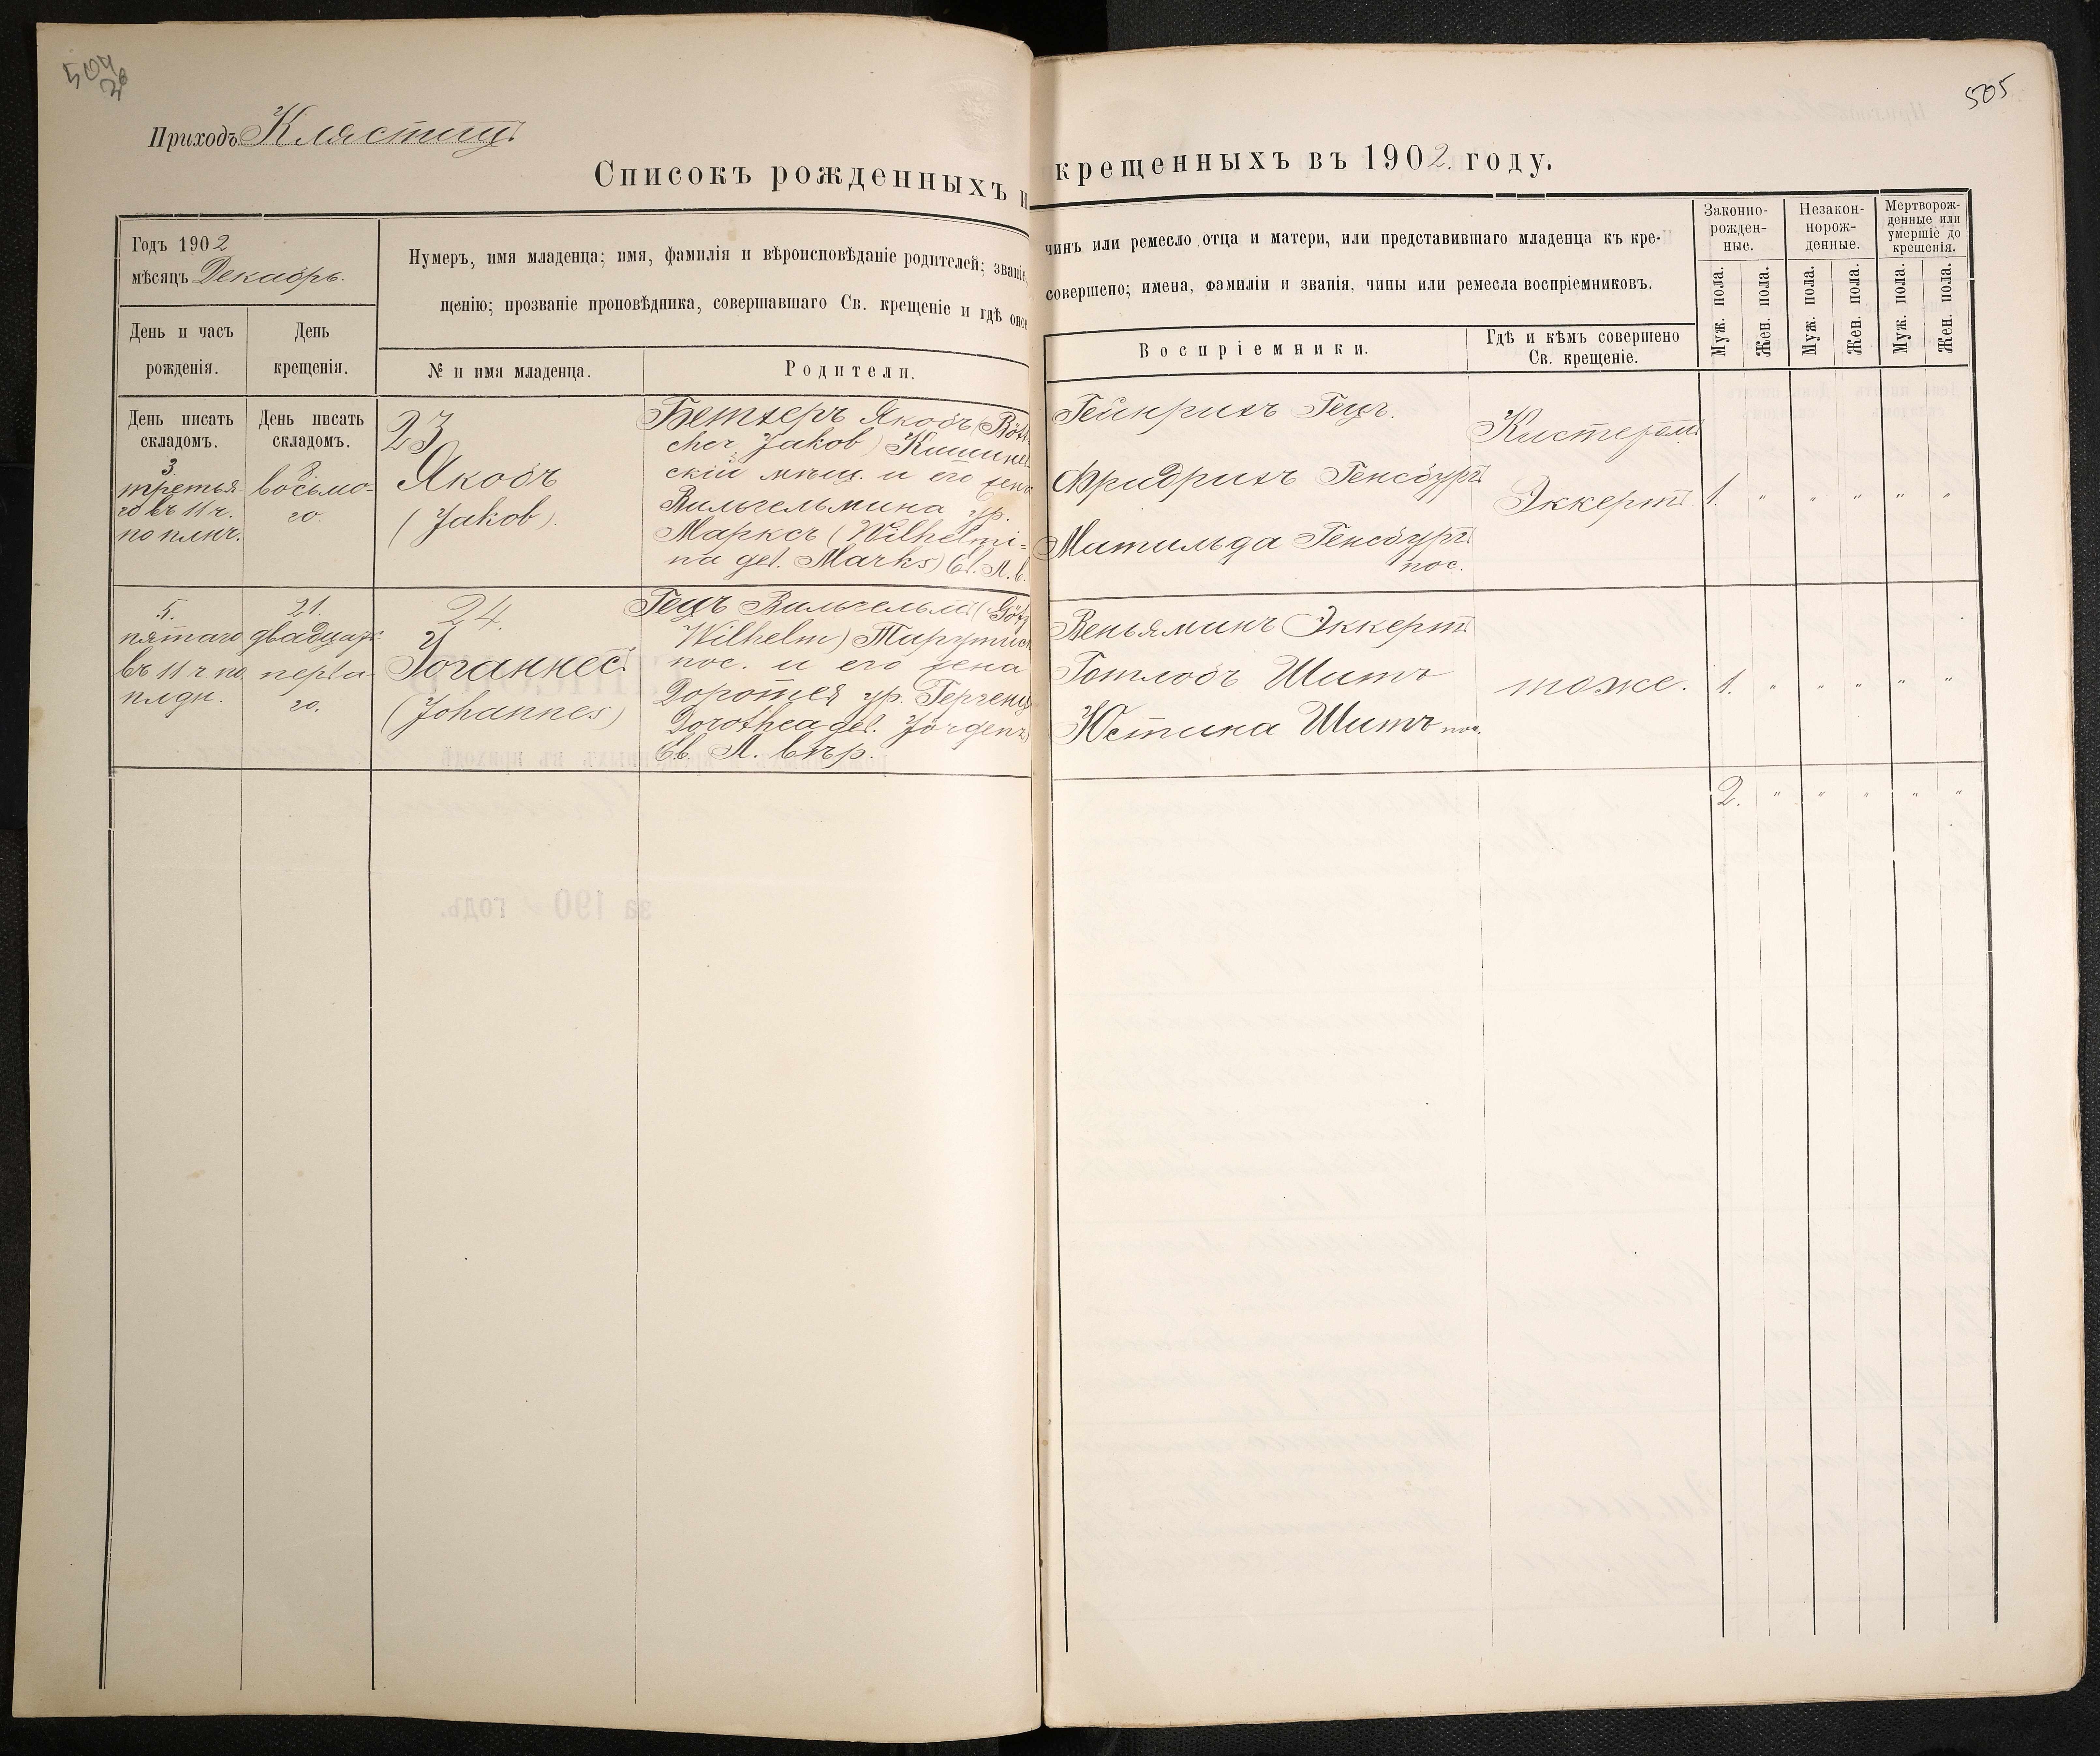 504
505
Приходъ Клястицъ
Списокъ рожденныхъ и крещенныхъ въ 1902. году.
Годъ 1902
мѣсяцъ Декабрь.
Нумеръ, имя младенца; имя, фамилія и вѣроисповѣданіе родителей; званіе, чинъ или ремесло отца и матери, или представившаго младенца къ кре-
щенію; прозваніе проповѣдника, совершавшаго Св. крещеніе и гдѣ оное совершено; имена, фамиліи и званія, чины или ремесла воспріемниковъ.
Законно-
рожден-
ные.
Незакон-
норож-
денные.
Мертворож-
денные или
умершіе до
крещенія.
Муж. пола.
Жен. пола.
Муж. пола.
Жен. пола.
Муж. пола.
Жен. пола.
День и часъ
рожденія.
День
крещенія.
№ и имя младенца.
Родители.
Воспріемники.
Гдѣ и кѣмъ совершено
Св. крещеніе.
День писать
складомъ.
3.
третья-
го въ 11 ч.
по плнч.
День писать
складомъ.
8.
восьмо-
го.
23
Якобъ
(Jakob).
Бетхеръ Якобъ (Bött-
cher Jakob) Кишинев
скій мѣщ. и его жена
Вильгельмина ур.
Марксъ (Wilhelmi-
na geb. Marks) Ев. Л. в.
Гейнрихъ Гецъ.
Фридрихъ Генсбургъ
Матильда Генсбургъ
пос.
Кистеромъ
Эккертъ
1. " " " " "
5.
пятаго
въ 11 ч. по
плдн.
21.
двадцать
перва-
го.
24.
Іоганнес.
(Johannes)
Гецъ Вильгельмъ (Götz
Wilhelm) Тарутинск
пос. и его жена
Доротея ур. Гергенцъ
Dorothea geb. Jörgenz)
Ев. Л. вѣр.
Веньяминъ Эккертъ
Готлобъ Шитъ
Юстина Шитъ пос.
тоже.
1. " " " " "
2. " " " " "